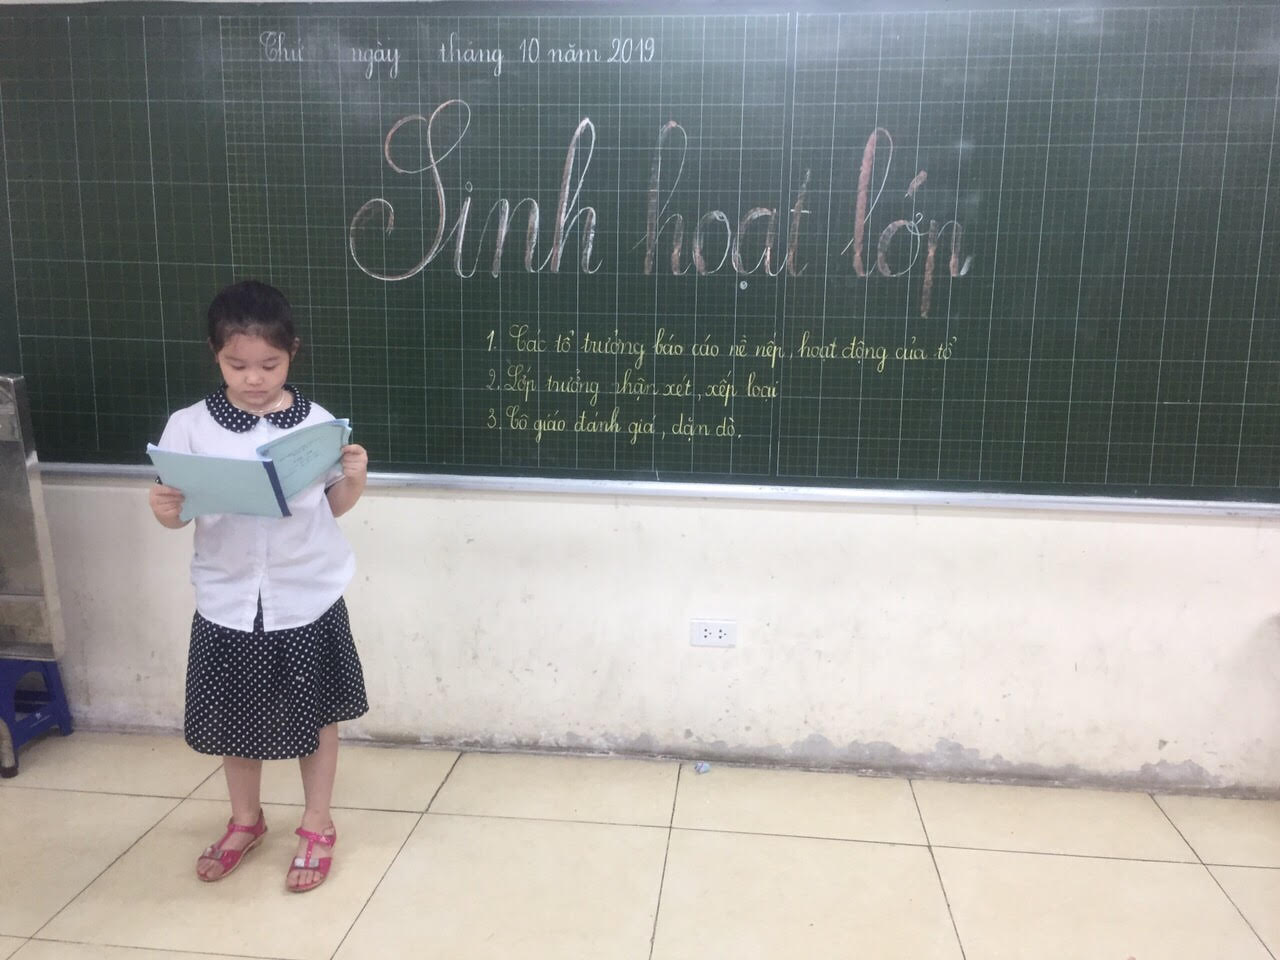 Thứ ngày tháng 10 năm 2019
Sinh hoạt lớp
1. Các tổ trưởng báo cáo nề nếp, hoạt động của tổ
2. Lớp trưởng nhận xét, xếp loại
3. Cô giáo đánh giá, dặn dò.